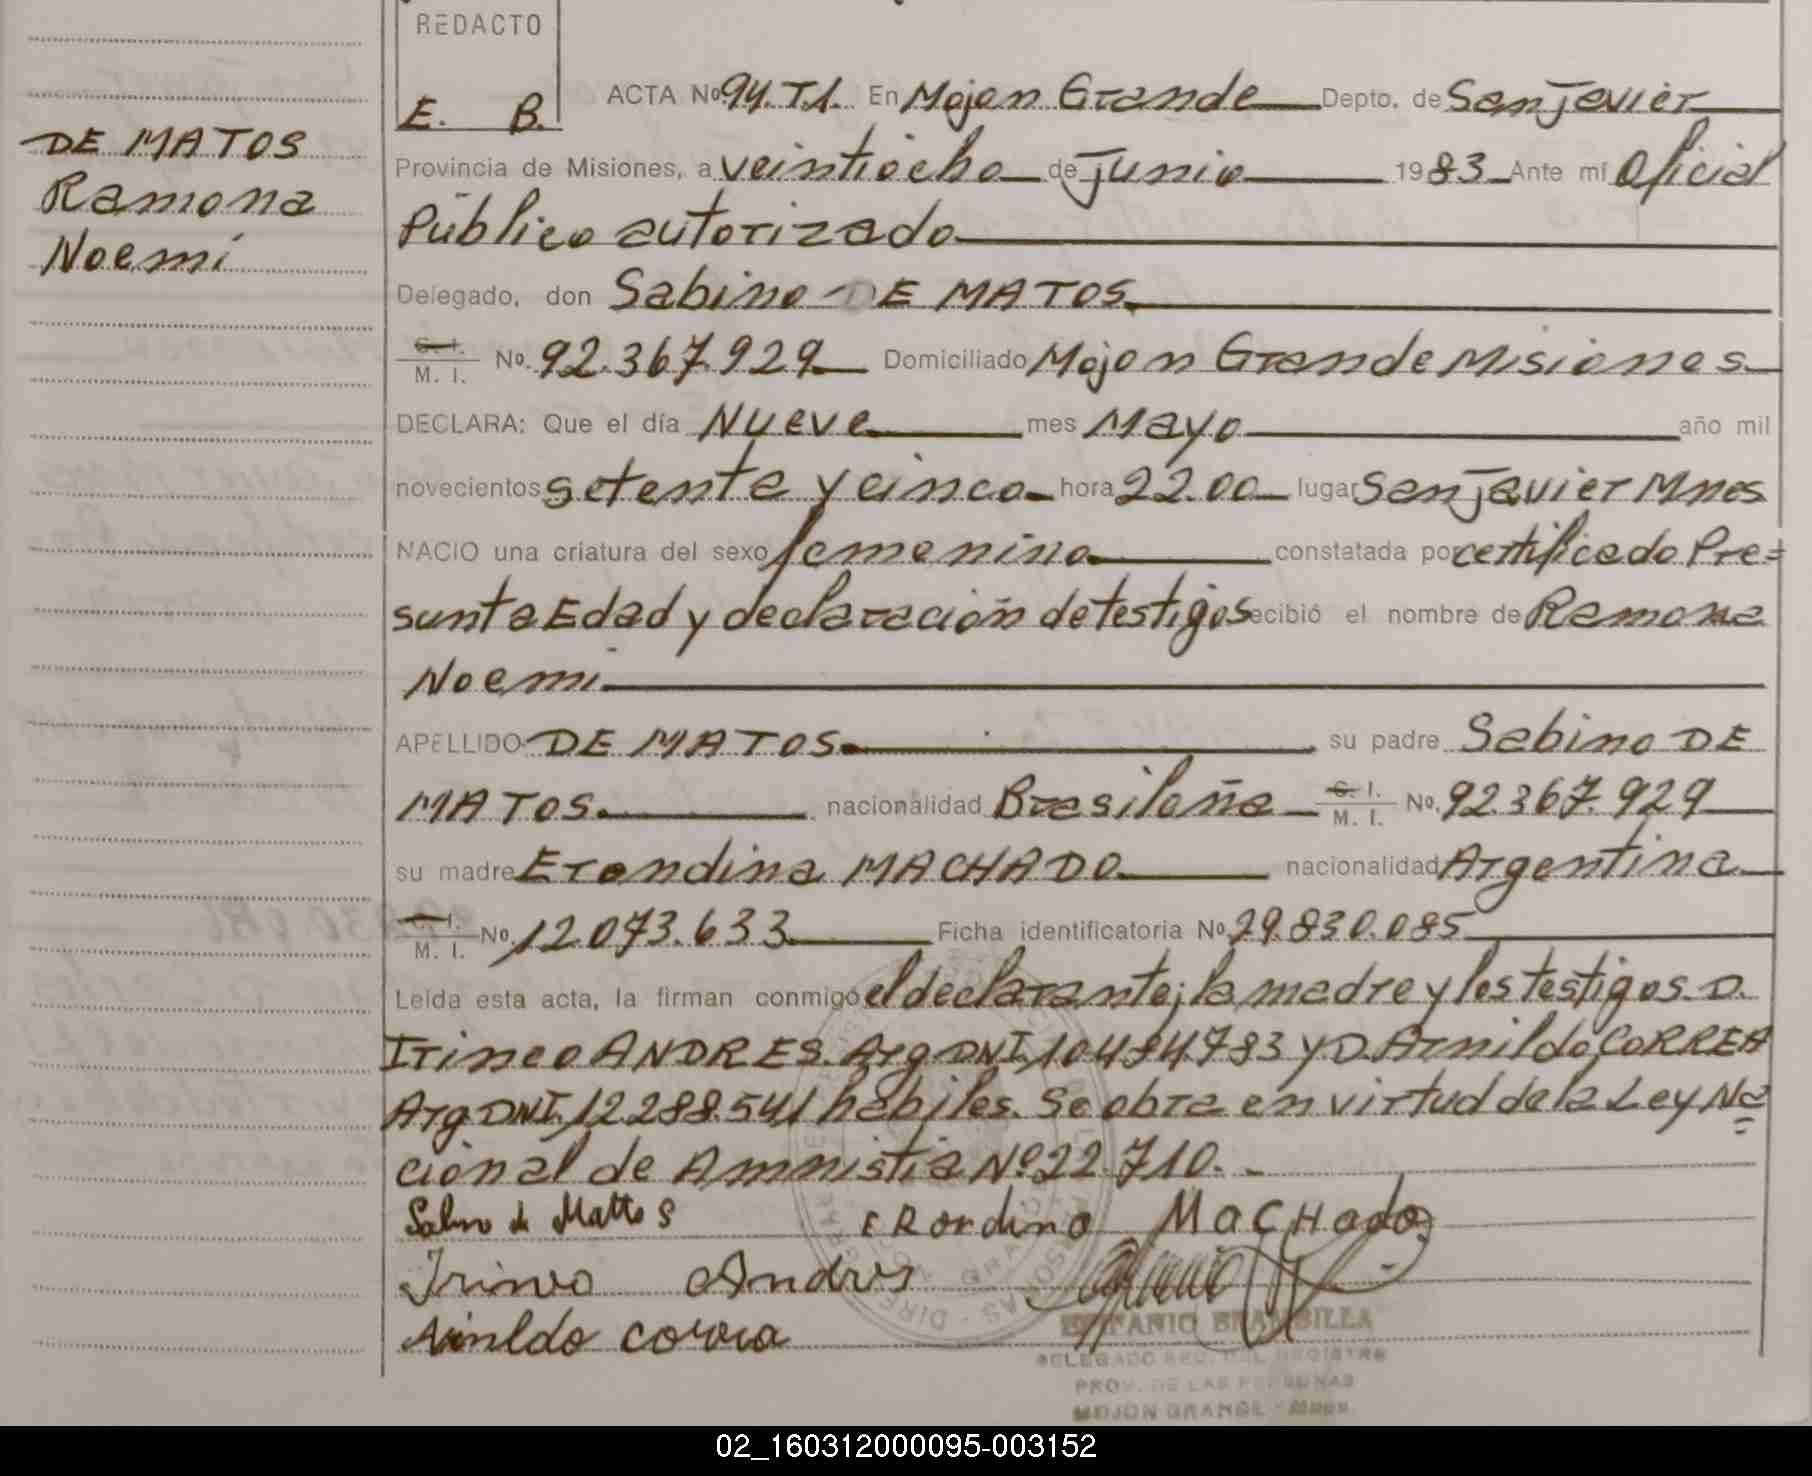 REDACTO
E. B.
DE MATOS
Ramona
Noemí
ACTA Nº 94.T.1. En Mojon Grande Depto. de San Javier
Provincia de Misiones, a veintiocho de junio 1983 Ante mí Oficial
Público autorizado
Delegado, don Sabino DE MATOS
C. I.
M. I. Nº. 92.367.929 Domiciliado Mojon Grande Misiones
DECLARA: Que el día Nueve mes Mayo año mil
novecientos setenta y cinco hora 22.00 lugar San Javier Mnes
NACIO una criatura del sexo femenino constatada por certificado Pre=
sunta Edad y declaración de testigos recibió el nombre de Ramona
Noemi
APELLIDO DE MATOS su padre Sabino DE
MATOS nacionalidad Brasileña C. I.
M. I. Nº. 92.367.929
su madre Erondina MACHADO nacionalidad Argentina
C. I.
M. I. Nº. 12.073.633 Ficha identificatoria Nº. 29.830.085
Leída esta acta, la firman conmigo el declarante; la madre y los testigos. D.
Irineo ANDRES. Arg DNI. 10484.783 y D. Arnildo CORREA
Arg DNI. 12.288.541 hábiles. Se obra en virtud de la Ley Na=
cional de Amnistia Nº 22.710. -
Sabino de Mattos ERondina MaCHado
Irineo Andres
Arnildo correa
DELEGADO SEC. DEL REGISTRO
PROV. DE LAS PERSONAS
MOJON GRANDE - Mnes
02_160312000095-003152